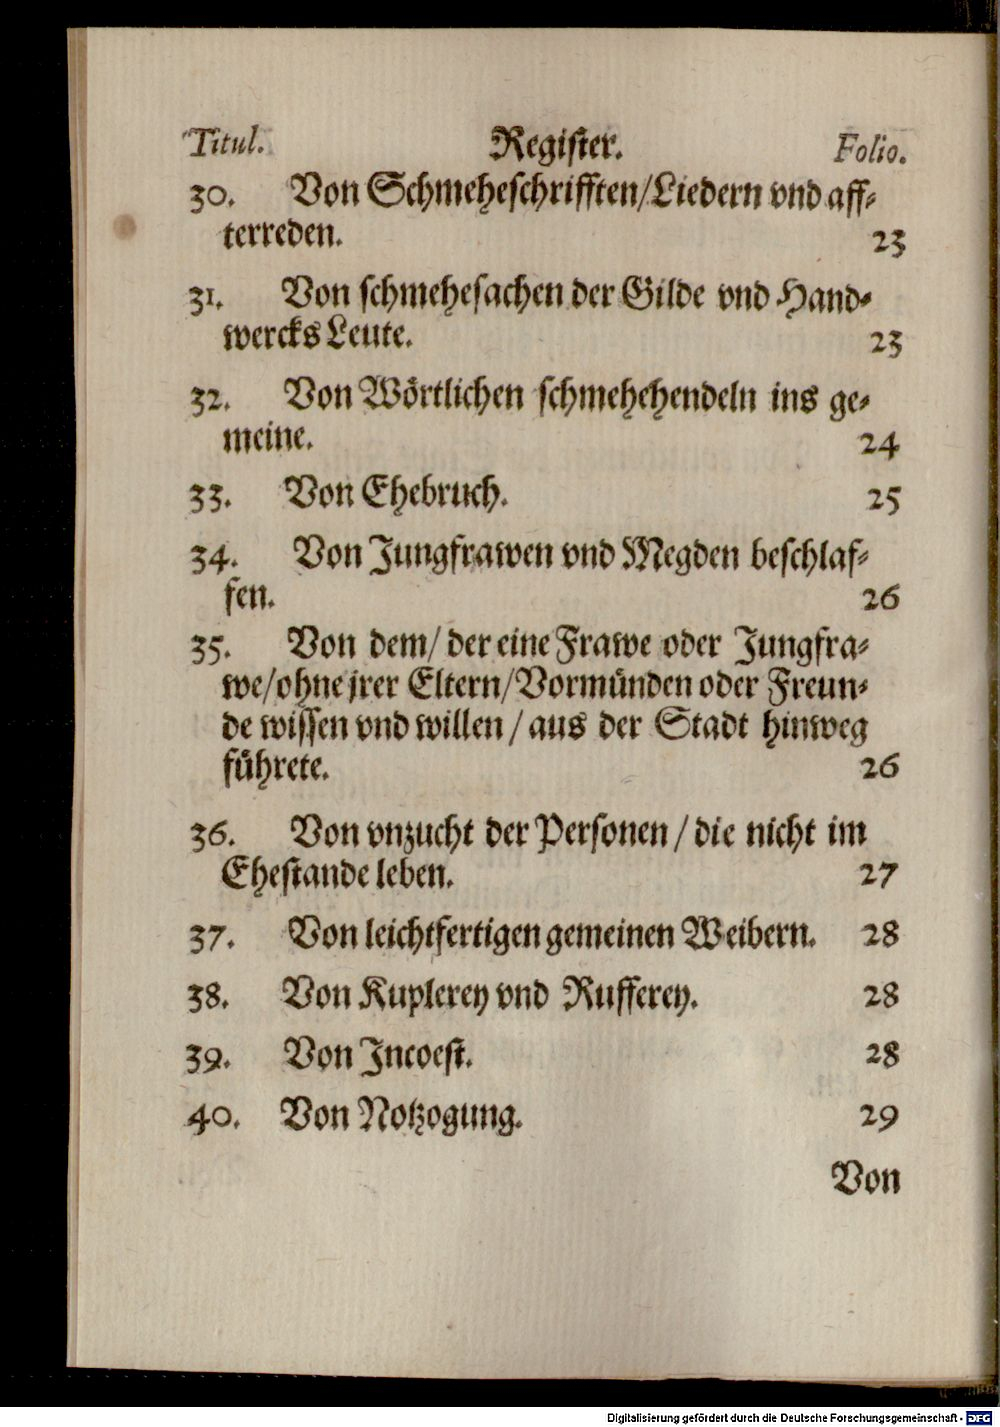 Titul. Register. Folio.
30. Von Schmeheschrifften/Liedern vnd aff-
terreden. 23
31. Von schmehesachen der Gilde vnd Hand-
wercks Leute. 23
32. Von Wörtlichen schmehehendeln ins ge-
meine. 24
33. Von Ehebruch. 25
34. Von Jungfrawen vnd Megden beschlaf-
fen. 26
35. Von dem/ der eine Frawe oder Jungfra-
we/ohne jrer Eltern/Vormünden oder Freun-
de wissen vnd willen / aus der Stadt hinweg
führete. 26
36. Von vnzucht der Personen / die nicht im
Ehestande leben. 27
37. Von leichtfertigen gemeinen Weibern. 28
38. Von Kuplerey vnd Rufferey. 28
39. Von Incoest. 28
40. Von Notzogung. 29
Von
Digitalisierung gefördert durch die Deutsche Forschungsgemeinschaft - DFG